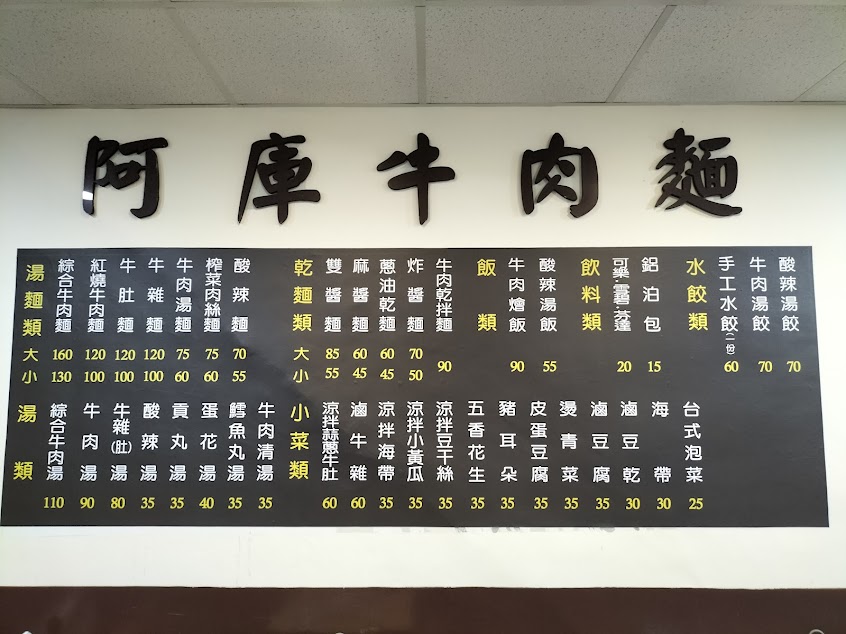 阿庫牛肉麵
湯麵類 大 小
綜合牛肉麵 160 130
紅燒牛肉麵 120 100
牛肚麵 120 100
牛雜麵 120 100
牛肉湯麵 75 60
榨菜肉絲麵 75 60
酸辣麵 70 55
乾麵類 大 小
雙醬麵 85 55
麻醬麵 60 45
蔥油乾麵 60 45
炸醬麵 70 50
牛肉乾拌麵 90
飯類
牛肉燴飯 90
酸辣湯飯 55
飲料類
可樂.雪碧.芬達 20
鋁泊包 15
水餃類
手工水餃(一份) 60
牛肉湯餃 70
酸辣湯餃 70
湯類
綜合牛肉湯 110
牛肉湯 90
牛雜(肚)湯 80
酸辣湯 35
貢丸湯 35
蛋花湯 40
鱈魚丸湯 35
牛肉清湯 35
小菜類
涼拌蒜蔥牛肚 60
滷牛雜 60
涼拌海帶 35
涼拌小黃瓜 35
涼拌豆干絲 35
五香花生 35
豬耳朵 35
皮蛋豆腐 35
燙青菜 35
滷豆腐 35
滷豆乾 30
海帶 30
台式泡菜 25